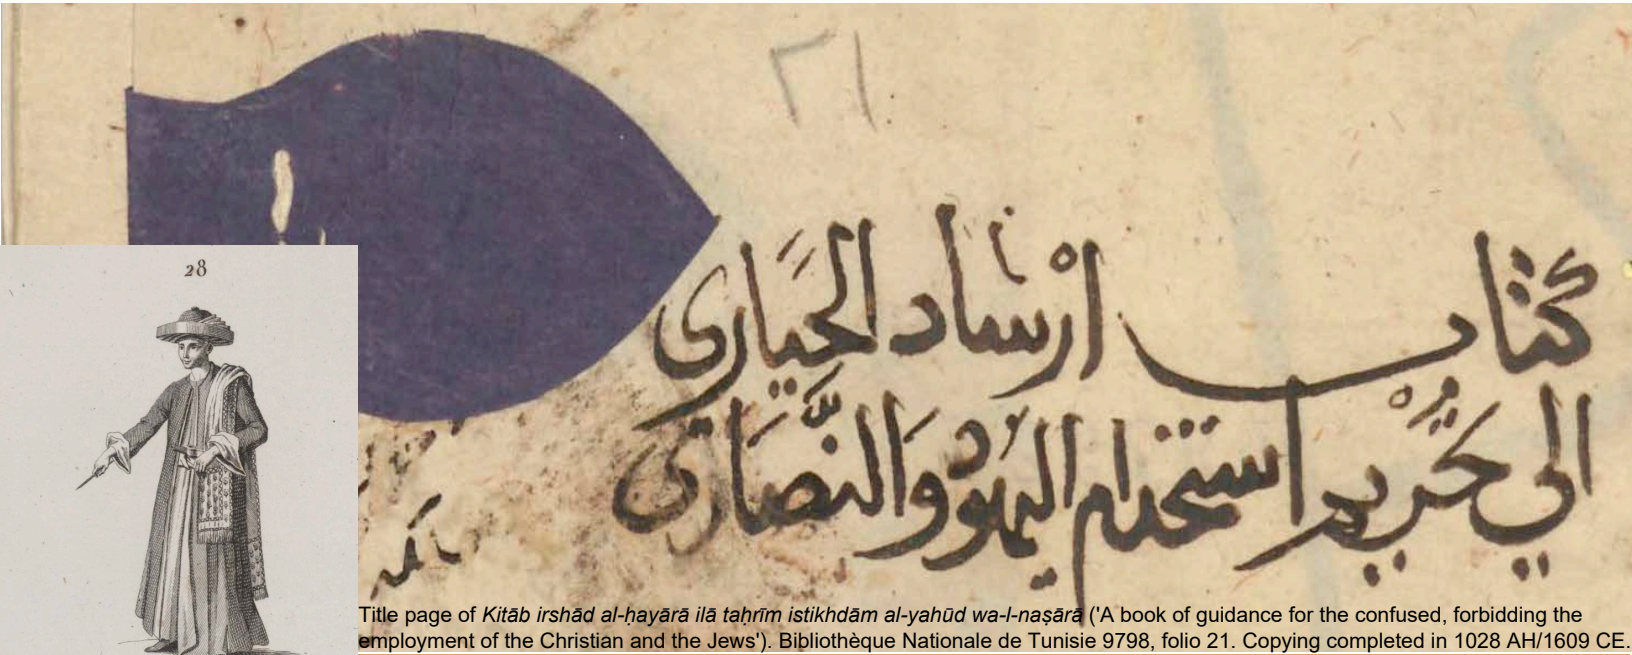 ٢١
كتاب إرشاد الحيارى
الي تحريم استخدام اليهود والنصارى
28
Title page of Kitāb irshād al-ḥayārā ilā taḥrīm istikhdām al-yahūd wa-l-naṣārā ('A book of guidance for the confused, forbidding the
employment of the Christian and the Jews'). Bibliothèque Nationale de Tunisie 9798, folio 21. Copying completed in 1028 AH/1609 CE.